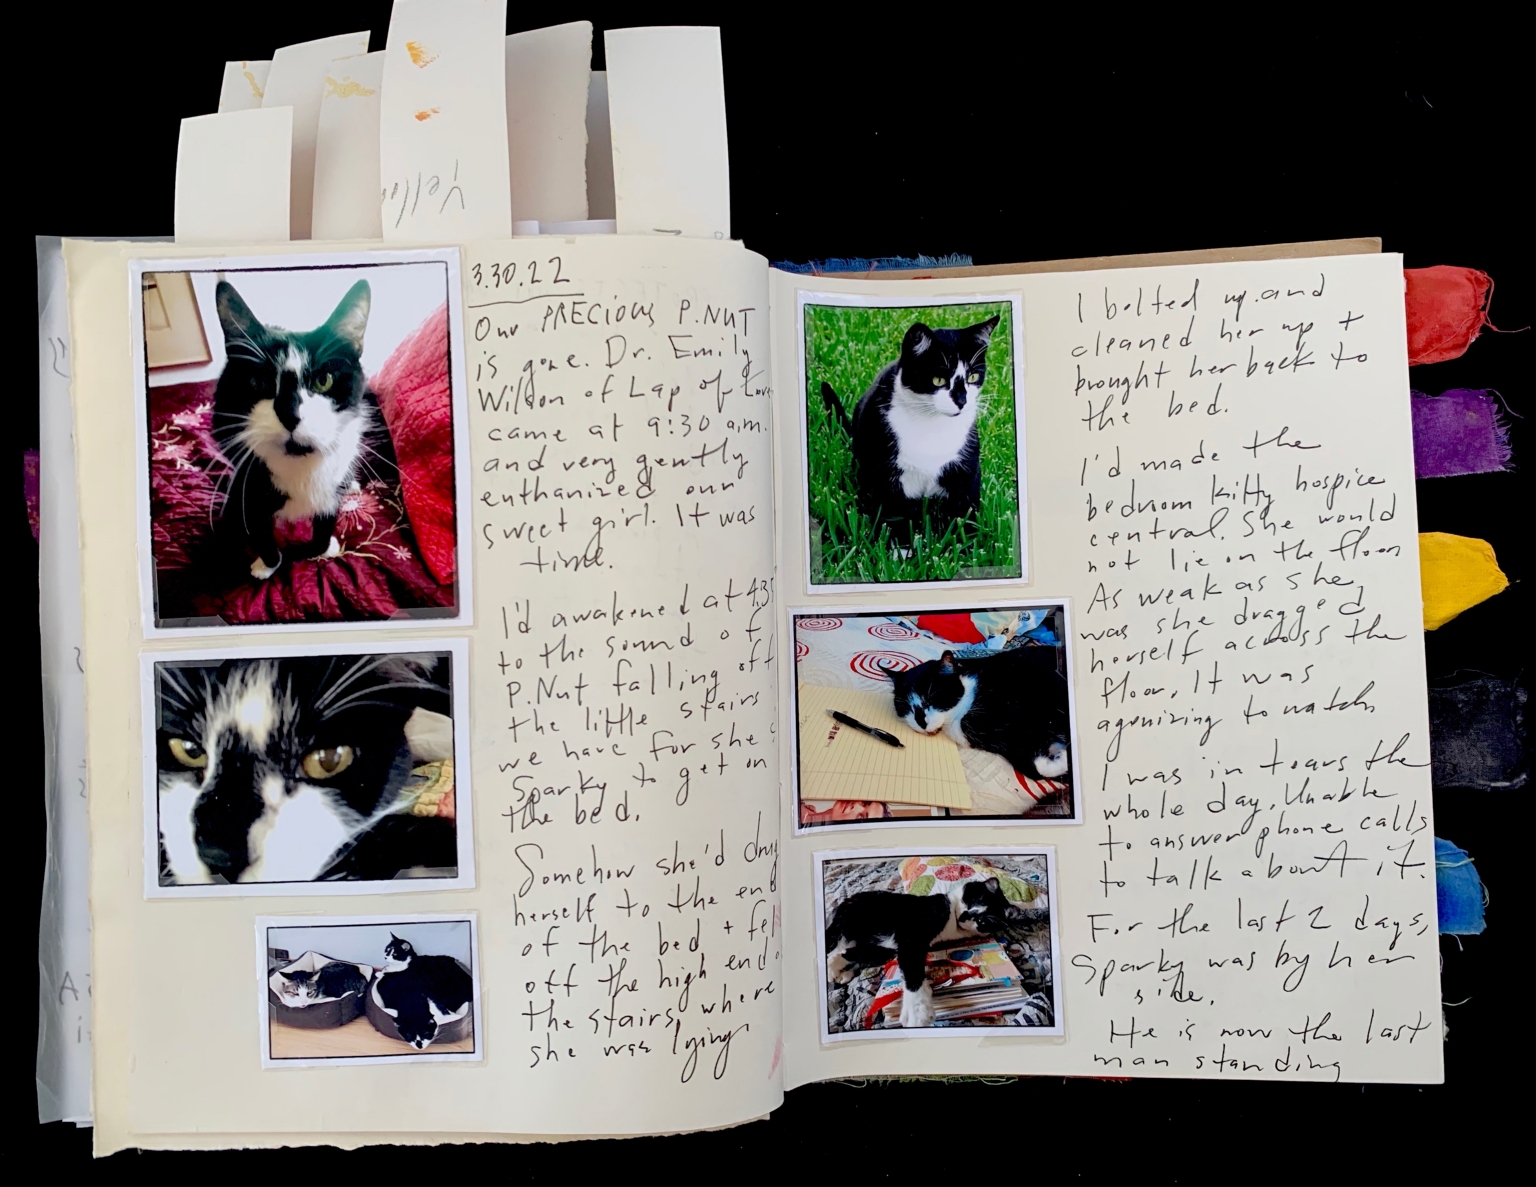 Yellow
3.30.22
Our PRECIOUS P.NUT
is gone. Dr. Emily
Wilson of Lap of Love
came at 9:30 a.m.
and very gently
euthanized our
sweet girl. It was
time.
I'd awakened at 4:3
to the sound of
P.Nut falling off
the little stairs
we have for she
Sparky to get on
the bed.
Somehow she'd drug
herself to the end
of the bed + fel
off the high end o
the stairs, where
she was lying
I bolted up and
cleaned her up +
brought her back to
the bed.
I'd made the
bedroom kitty hospice
central. She would
not lie on the floor
As weak as she
was she dragged
herself across the
floor, It was
agonizing to watch
I was in tears the
whole day. Unable
to answer phone calls
to talk about it.
For the last 2 days,
Sparky was by her
side.
He is now the last
man standing